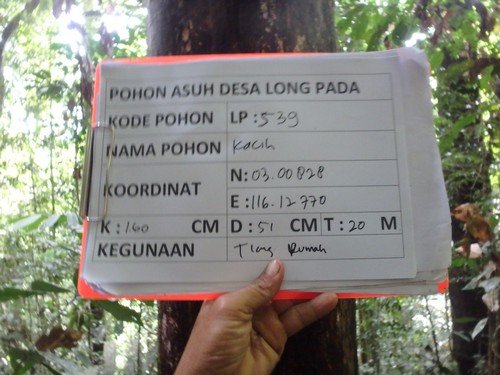 POHON ASUH DESA LONG PADA
KODE POHON LP : 539
NAMA POHON Kacih
KOORDINAT N: 03.00828
E : 116.12770
K : 160 CM D : 51 CM T : 20 M
KEGUNAAN Tiang Rumah